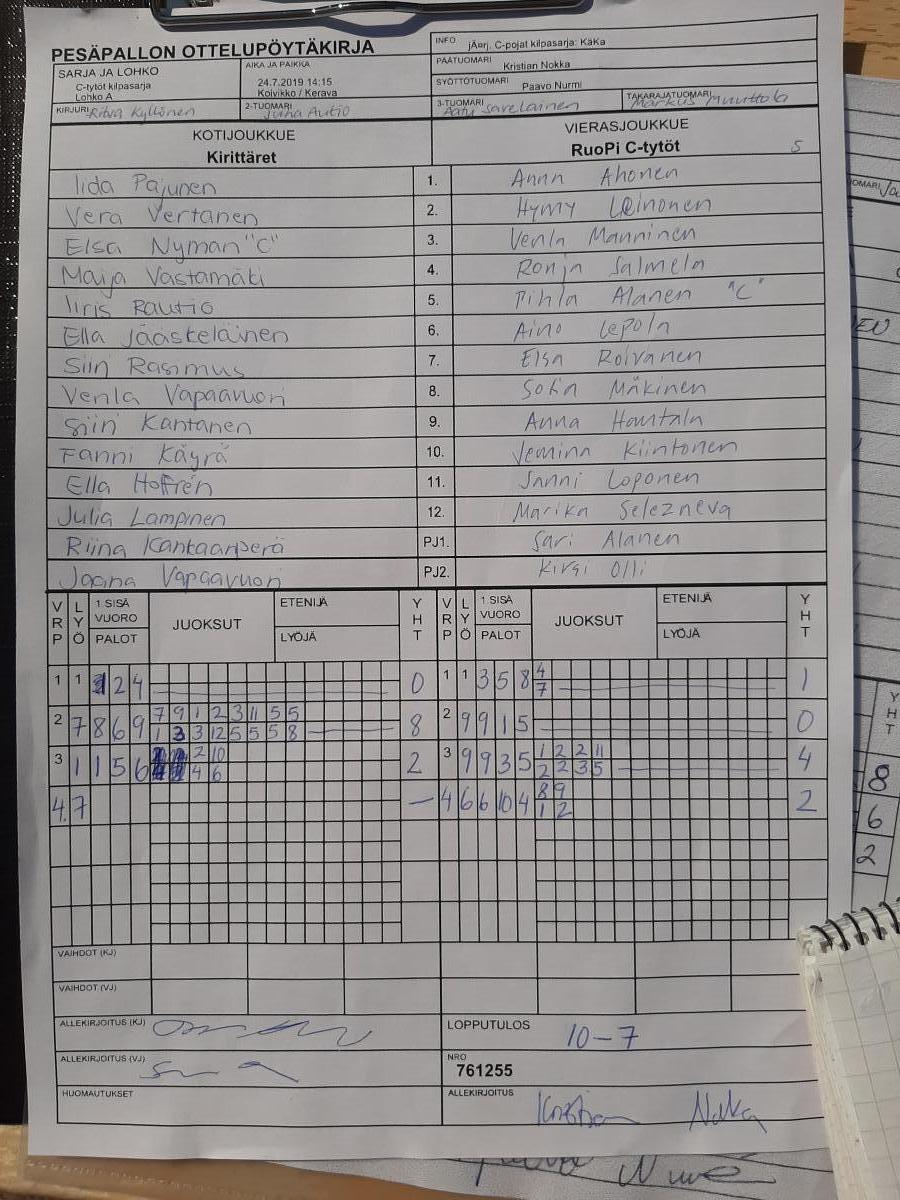 PESÄPALLON OTTELUPÖYTÄKIRJA
INFO jÄorj. C-pojat kilpasarja: KäKa
PÄÄTUOMARI Kristian Nokka
SARJA JA LOHKO
C-tytöt kilpasarja
Lohko A
AIKA JA PAIKKA
24.7.2019 14:15
Koivikko / Kerava
SYÖTTÖTUOMARI Paavo Nurmi
KIRJURI Ritva Kyllönen
2-TUOMARI Juha Autio
3-TUOMARI Aatu Savelainen
TAKARAJATUOMARI Markus Muuttola
KOTIJOUKKUE
Kirittäret
VIERASJOUKKUE
RuoPi C-tytöt 5
Iida Pajunen 1. Anna Ahonen
Vera Vertanen 2. Hymy Leinonen
Elsa Nyman "C" 3. Venla Manninen
Maija Vastamäki 4. Ronja Salmela
Iiris Rautio 5. Pihla Alanen "C"
Ella Jääskeläinen 6. Aino Lepola
Siiri Rasmus 7. Elsa Roivanen
Venla Vapaavuori 8. Sofia Mäkinen
Siiri Kantanen 9. Anna Hautala
Fanni Käyrä 10. Jemina Kiintonen
Ella Hoffrén 11. Sanni Loponen
Julia Lampinen 12. Marika Selezneva
Riina Kantaanperä PJ1. Sari Alanen
Jaana Vapaavuori PJ2. Kirsi Olli
VRP LYÖ 1.SISÄ VUORO PALOT JUOKSUT ETENIJÄ LYÖJÄ YHT VRP LYÖ 1.SISÄ VUORO PALOT JUOKSUT ETENIJÄ LYÖJÄ YHT
1 1 2 4 0 1 1 3 5 8 4 1
7
2 7 8 6 9 7 9 1 2 3 11 5 5 8 2 9 9 1 5 0
1 3 3 12 5 5 5 8
3 1 1 5 6 2 10 2 3 9 9 3 5 1 2 2 11 4
4 6 2 2 3 5
4. 7 – 4 6 6 10 4 8 9 2
1 2
VAIHDOT (KJ)
VAIHDOT (VJ)
ALLEKIRJOITUS (KJ)
LOPPUTULOS 10-7
ALLEKIRJOITUS (VJ)
NRO
761255
HUOMAUTUKSET
ALLEKIRJOITUS Kristian Nokka
YHT
8
6
2